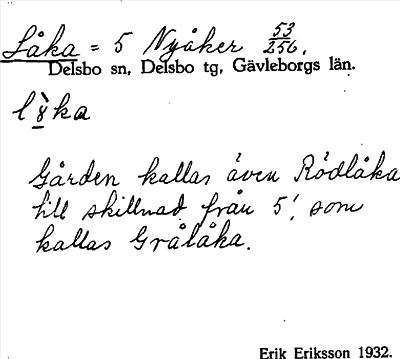 Låka = 5 Nyåker 53/256.
Delsbo sn, Delsbo tg, Gävleborgs län.
l8̀ka
Gården kallas även Rödlåka
till skillnad från 5', som
kallas Grålåka.
Erik Eriksson 1932.